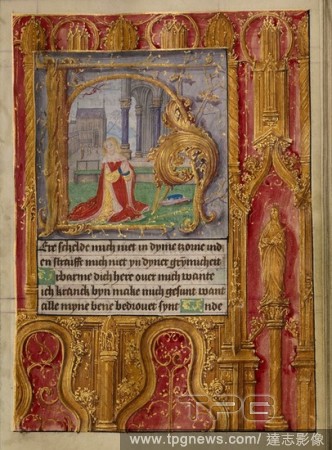 Ere schelde mich niet in dyme torne und
en straiff mich niet yn dyner grymicheit
Erbarme dich here over mich wante
ich kranck byn make mich gesunt want
alle myne bene bedrovet synt Ende
TPG
www.tpgnews.com/達志影像